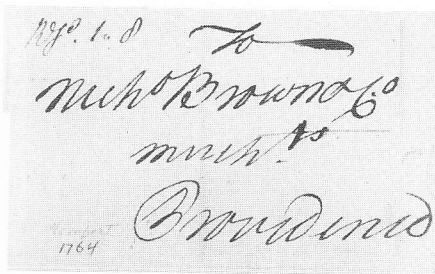 To
Nichº Brown & Cº
merchts
Providence
Newport
1764